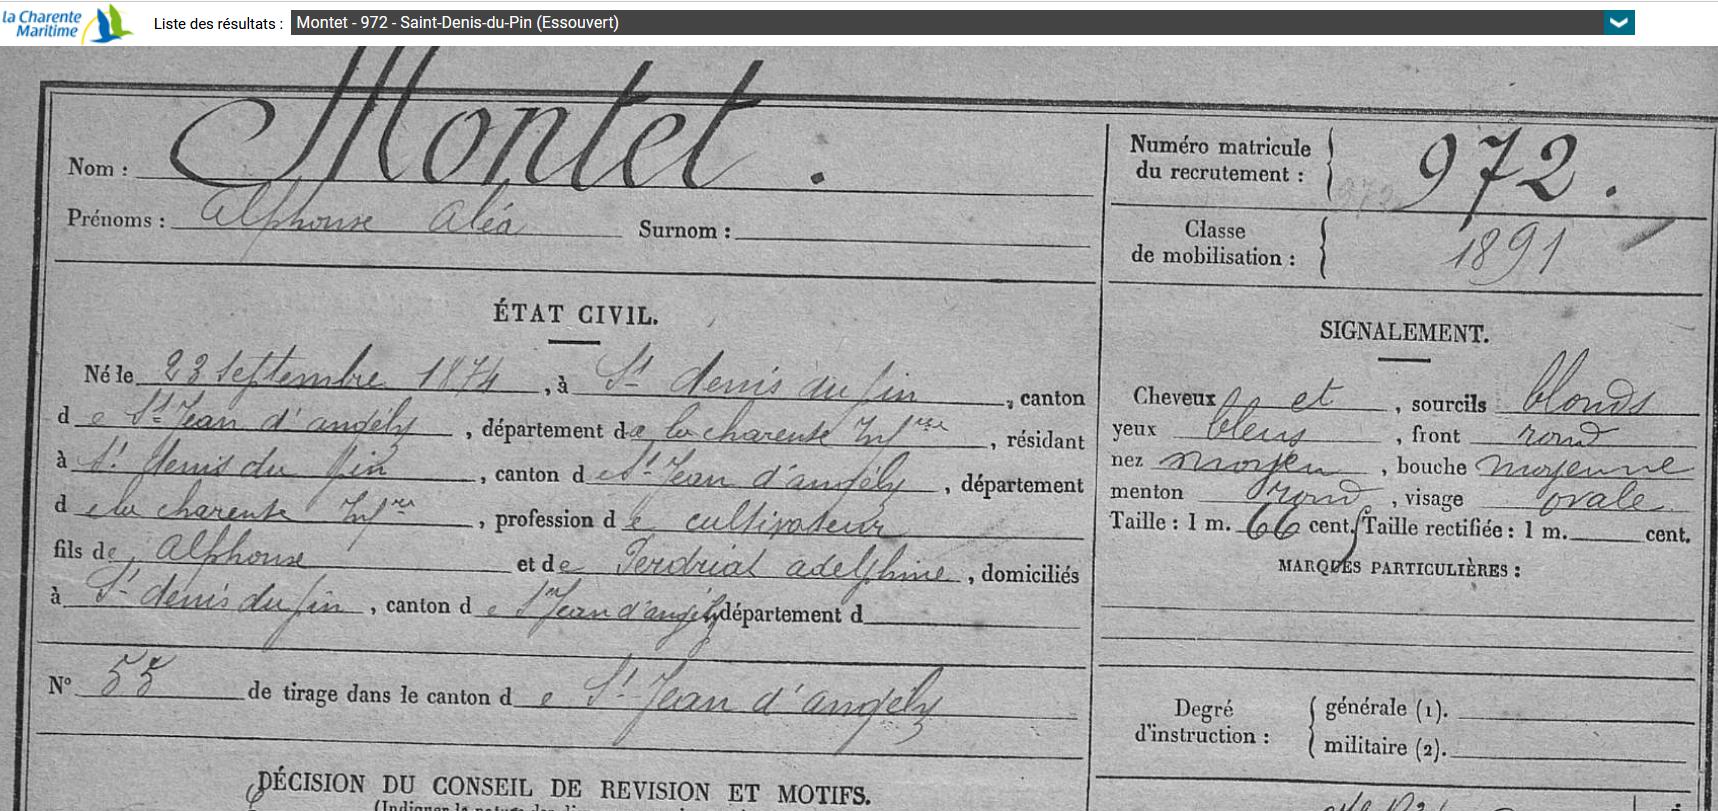 la Charente
Maritime
Liste des résultats : Montet - 972 - Saint-Denis-du-Pin (Essouvert)
Nom : Montet.
Prénoms : Alphonse Aléa Surnom :
Numéro matricule
du recrutement : 972.
Classe
de mobilisation : 1891
ÉTAT CIVIL.
Né le 23 septembre 1874, à St denis du pin, canton
de St Jean d'angély, département de la charente Infre, résidant
à St denis du pin, canton de St Jean d'angély, département
de la charente Infre, profession de cultivateur
fils de Alphonse et de Perdriat adelphine, domiciliés
à St denis du pin, canton de St Jean d'angély département d
No 55 de tirage dans le canton de St Jean d'angély
SIGNALEMENT.
Cheveux et, sourcils blonds
yeux bleus, front rond
nez moyen, bouche moyenne
menton rond, visage ovale
Taille : 1 m. 66 cent. Taille rectifiée : 1 m. cent.
MARQUES PARTICULIÈRES :
Degré
d'instruction :
générale (1).
militaire (2).
DÉCISION DU CONSEIL DE REVISION ET MOTIFS.